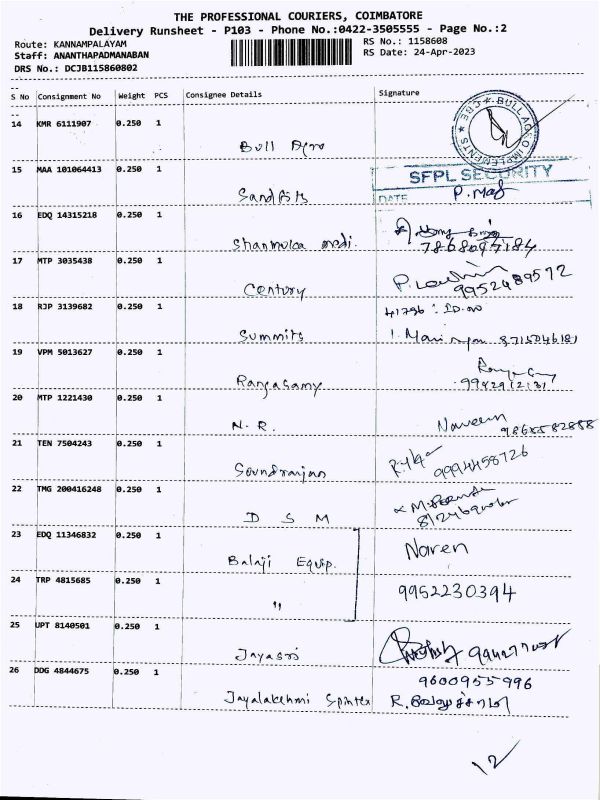 THE PROFESSIONAL COURIERS, COIMBATORE
Delivery Runsheet - P103 - Phone No.:0422-3505555 - Page No.:2
Route: KANNAMPALAYAM
RS No.: 1158608
Staff: ANANTHAPADMANABAN
RS Date: 24-Apr-2023
DRS No.: DCJB115860802
S No Consignment No Weight PCS Consignee Details Signature
14 KMR 6111907 0.250 1
Bull Agro
BULL AGRO IMPLEMENTS * CBE *
15 MAA 101064413 0.250 1
SFPL SECURITY
Sandfits
DATE
16 EDQ 14315218 0.250 1
Shanmuga medi.
7868097184
17 MTP 3035438 0.250 1
Century
9952489572
18 RJP 3139682 0.250 1
41796 : ID.no
Summits
8715046181
19 VPM 5013627 0.250 1
Rangasamy
9942912131
20 MTP 1221430 0.250 1
N. R.
Naveen
9865582888
21 TEN 7504243 0.250 1
Soundrarajan
9994458726
22 TMG 200416248 0.250 1
D S M
23 EDQ 11346832 0.250 1
Balaji Equip.
Naren
24 TRP 4815685 0.250 1
"
9952230394
25 UPT 8140501 0.250 1
Jayasri
26 DDG 4844675 0.250 1
9600955996
Jayalakshmi Spintex
12